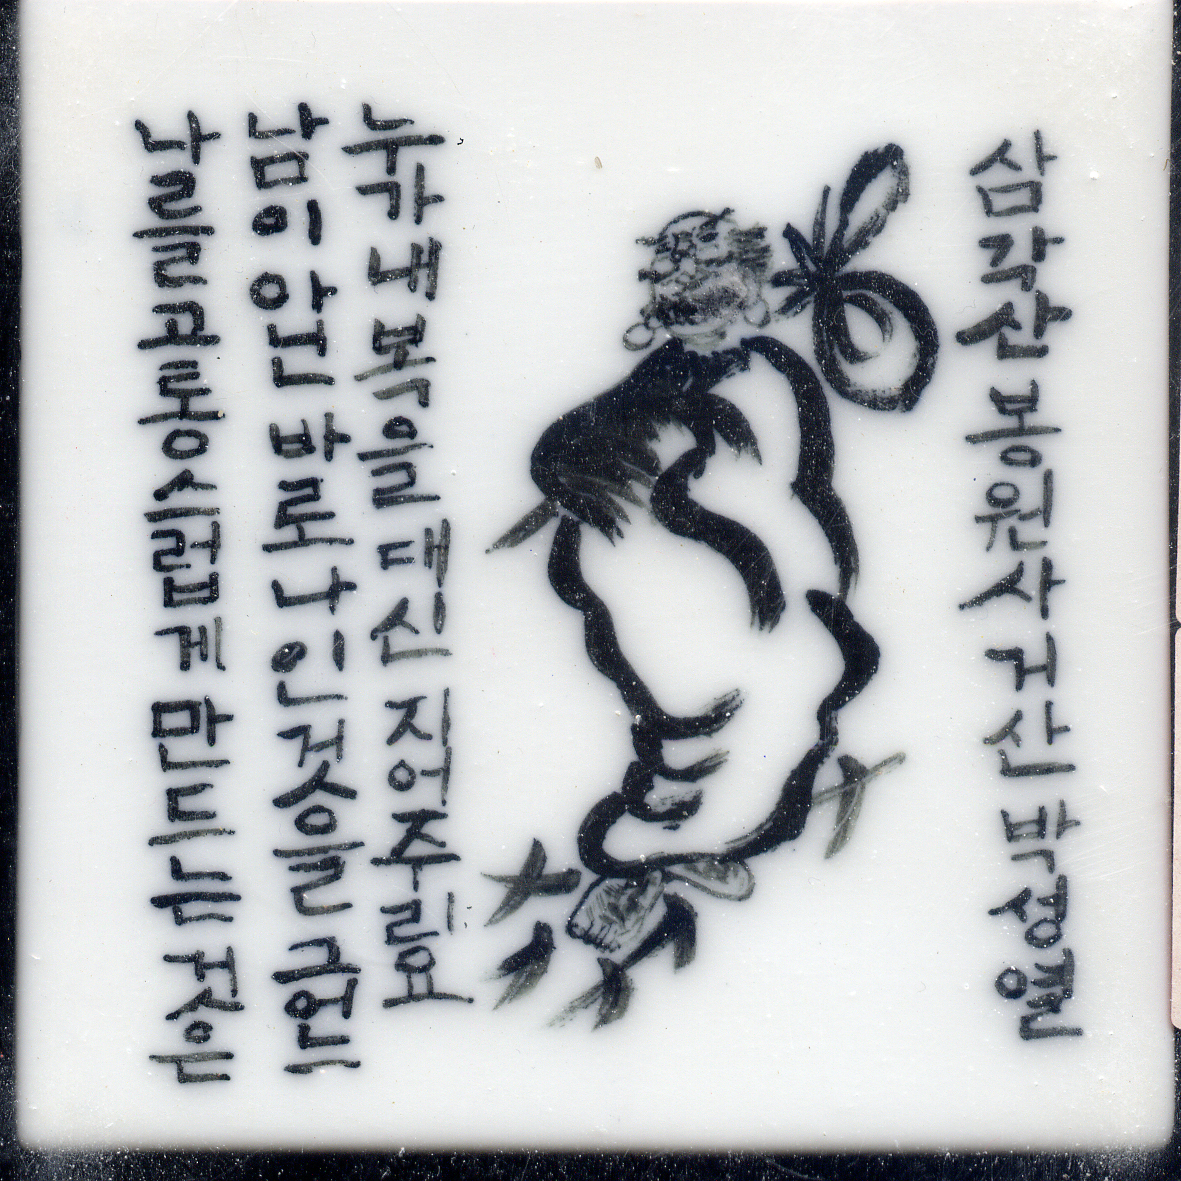 나를 고통스럽게 만드는 것은
남이 아닌 바로 나인것을 그언느
누가 내 복을 대신 지어주리요
삼각산 봉원사 거산